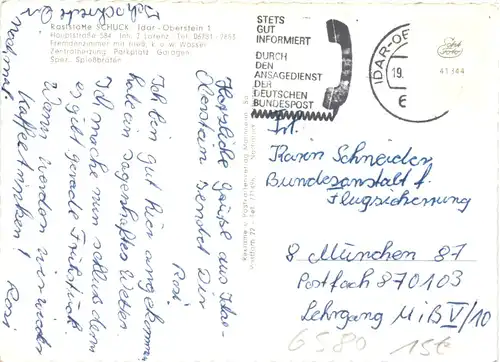 Raststätte SCHUCK Idar-Oberstein 1
Hauptstraße 584 Inh. J. Lorenz Tel. 06781
Fremdenzimmer mit fließ. k. u. w. Wasser
Zentralheizung Parkplatz Garagen
Spez. Spießbraten
STETS
GUT
INFORMIERT
DURCH
DEN
ANSAGEDIENST
DER
DEUTSCHEN
BUNDESPOST
IDAR-OBE
19.
41 344
Herzliche Grüße aus Idar-
Oberstein sendet Dir
Rosi
Ich bin gut hier angekommen
habe ein sagenhaftes Wetter.
Ich mache nun schluß denn
es gibt gerade Frühstück
Wann werden wir wieder
Kaffeetrinken! Rosi
nochmal
Frl.
Karin Schneider
Bundesanstalt f.
Flugsicherung
8 München 87
Postfach 870103
Lehrgang MiB V/10
6580
15€